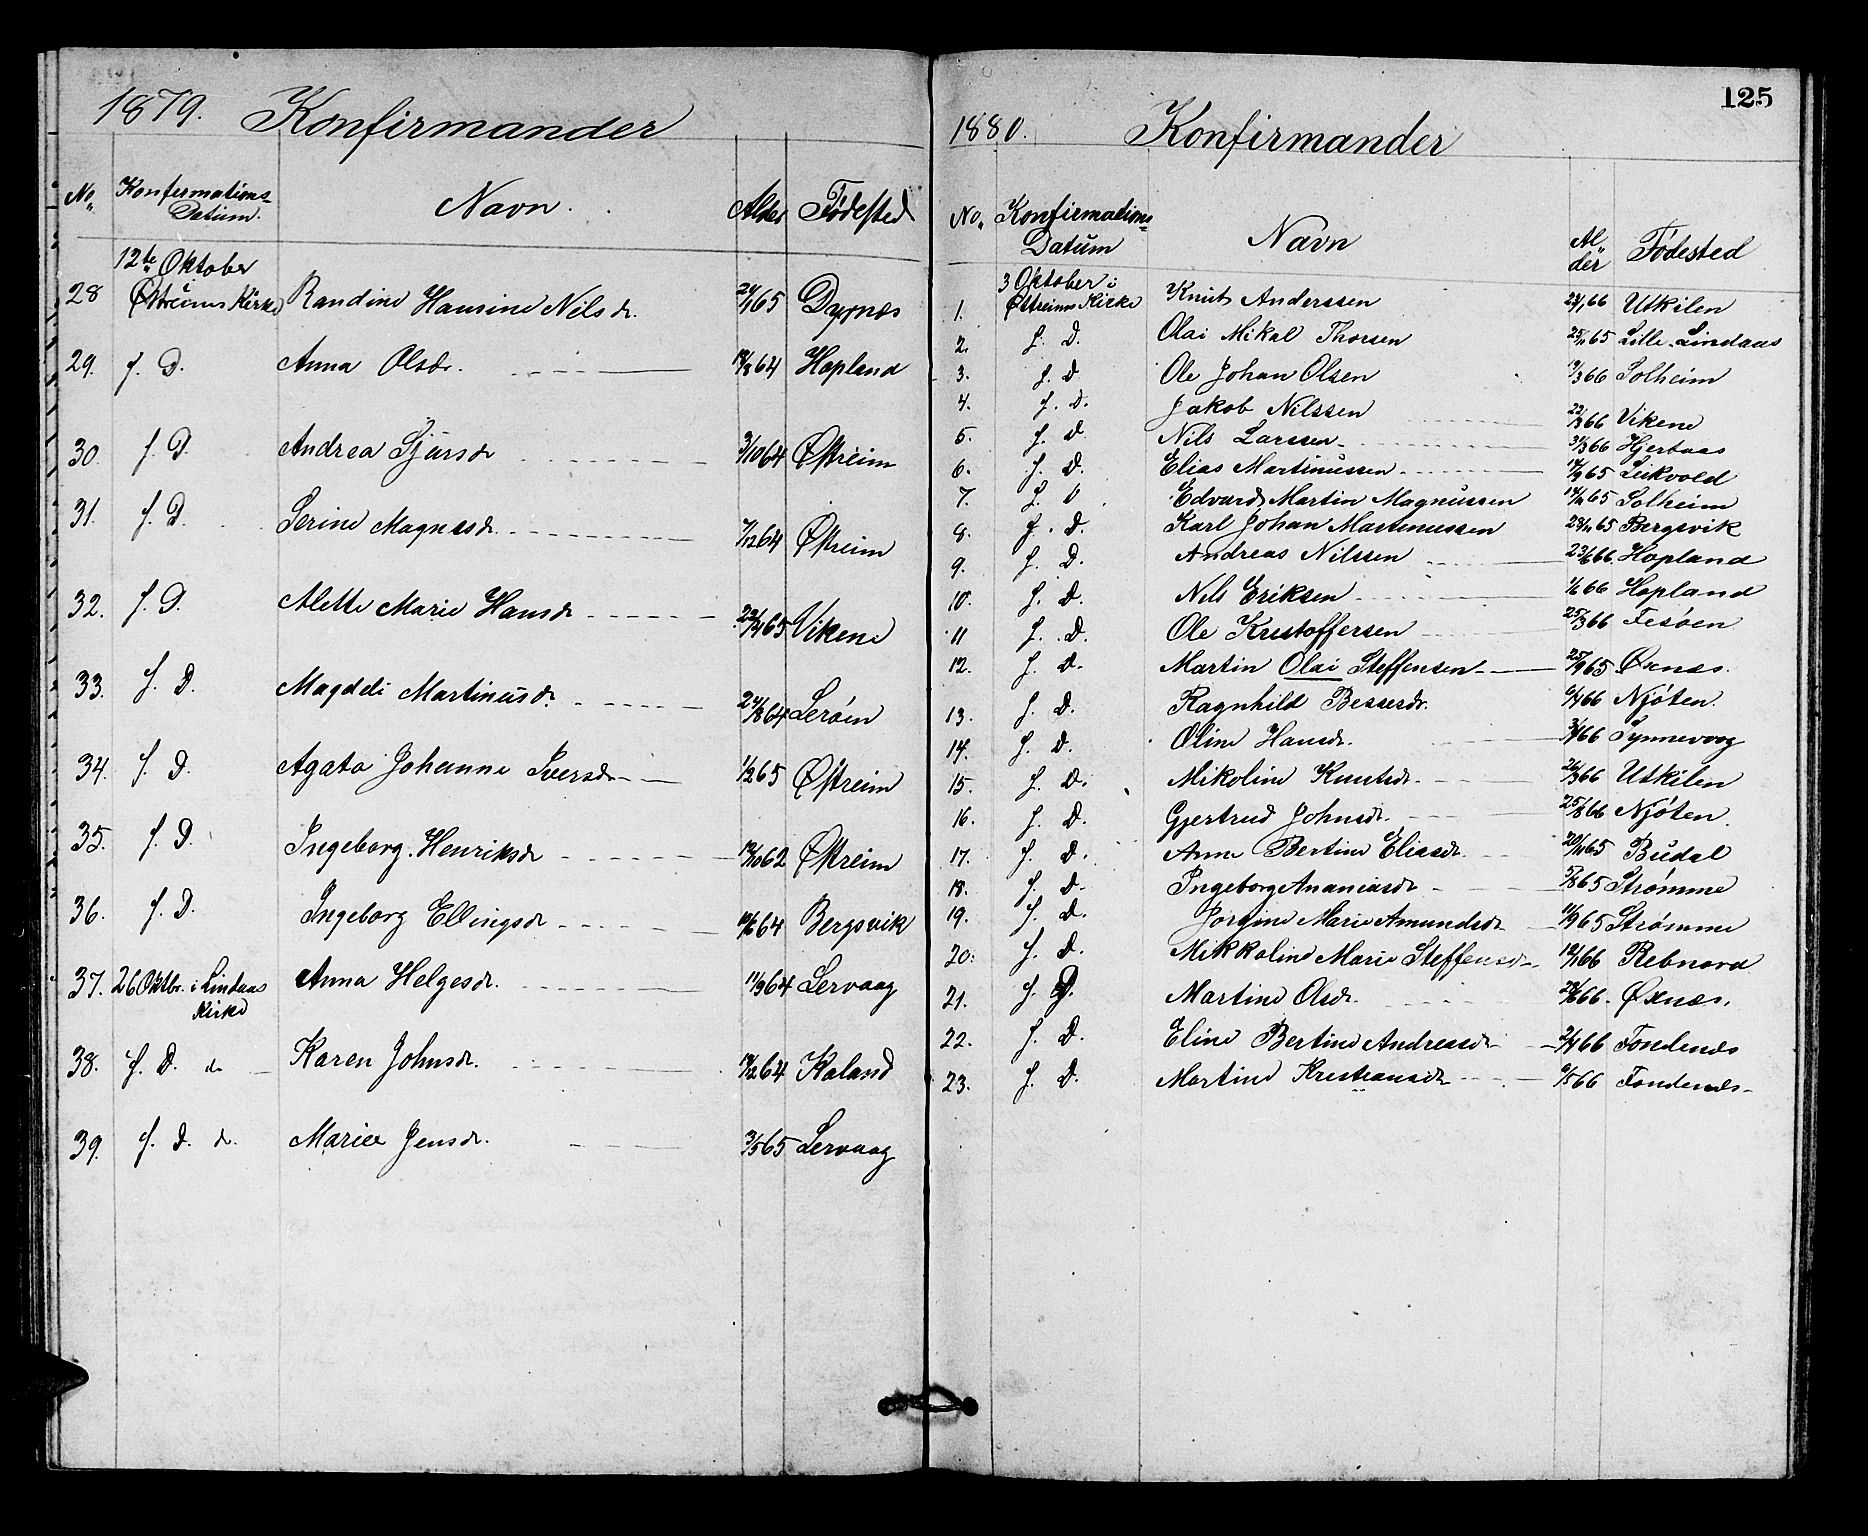 1879. Konfirmander
No. Konfermations Datum. Navn. Alder Fødested
12te Oktober
28 Østreims Kirke Randine Hansine Nilsdr. 24/1 65 Dyrnæs
29. f. D. Anna Olsdr. 64 Hopland
30. f. D. Andrea Sjursdr 3/10 64 Østreim
31. f. D. Serine Magnesdr. 7/12 64 Østreim
32. f. D. Alette Marie Hansdr 65 Vikene
33. f. D. Magdeli Martinusdr. 24/8 64 Lerøen
34. f. D. Agata Johanne Iversdr 1/2 65 Østreim
35. f. D. Ingeborg Henriksdr 62 Østreim
36. f. D. Ingeborg Ellingsdr 64 Bergsvik
37. 26 Oktbr. i Lindaas Kirke Anna Helgesdr. 11/9 64 Lervaag
38. f. D. d. Karen Johnsdr. 64 Kaland
39. f. D. d. Marie Jensdr. 3/5 65 Lervaag
125
1880. Konfirmander
No. Konfirmations Datum Navn Alder Fødested
3 Oktober i
1. Østreims Kirke Knut Anderssen 66 Utkilen
2. f. D. Olai Mikal Thorsen 25/11 65 Lille Lindaas
3. f. D Ole Johan Olsen 66 Solheim
4. f. D. Jakob Nilssen 66 Vikene
5. f. D Nils Larssen 66 Hjertaas
6. f. D. Elias Martinussen 65 Leikvold
7. Edvard Martin Magnussen 65 Solheim
8. f. D. Karl Johan Martinussen 65 Bergsvik
9. f. D. Andreas Nilssen 23/6 66. Hopland
10. f. D. Nils Eriksen 1/6 66 Hopland
11 f. D. Ole Kristoffersen 25/3 66 Fesøen
12. f. D. Martin Olai Steffensen 25/9 65 Øxnæs.
13. f. D. Ragnhild Bessesdr. 6/4 66 Njøten.
14. f. D. Oline Hansdr. 66 Synnevaag
15. f. D. Mikoline Knutsdr. 66 Utkilen
16. f. D. Gjertrud Johnsdr. 66 Njøten
17. f. D. Anne Bertine Eliasdr. 65 Budal
18. f. D. Ingeborg Ananiasdr 65 Strømme
19. f. D. Jorgine Marie Amundsdr 65 Strømme
20. f. D. Mikkoline Marie Steffensdr 66 Rebnora
21. f. D. Martine Olsdr. 66. Øxnæs.
22. f. D. Eline Bertine Andreasdr 66 Fondenæs
23. f. D. Martine Kristiansdr 6/5 66 Fondenæs